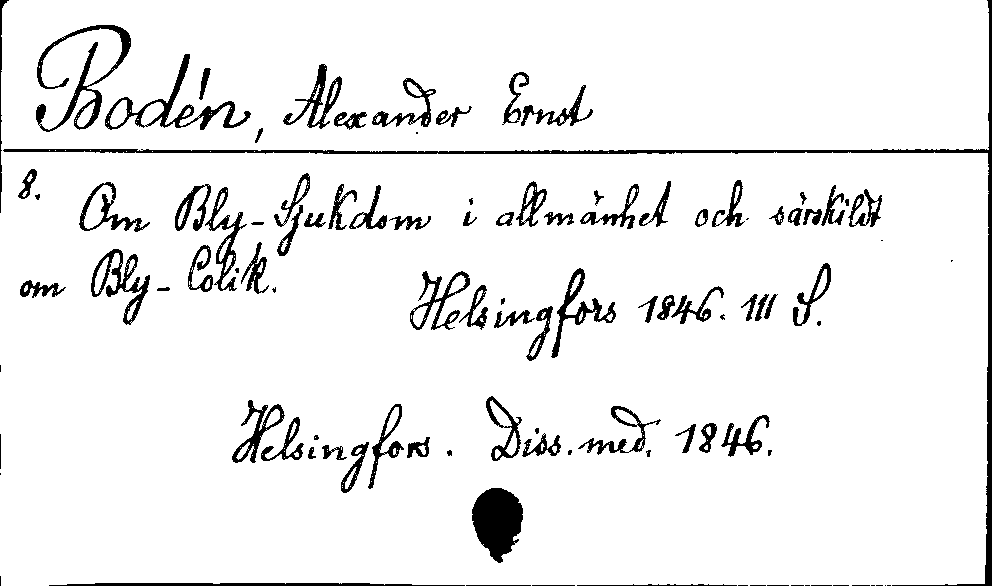 Bodén, Alexander Ernst
8. Om Bly-Sjukdom i allmänhet och särskildt
om Bly-Colik.
Helsingfors 1846. 111 S.
Helsingfors. Diss. med. 1846.